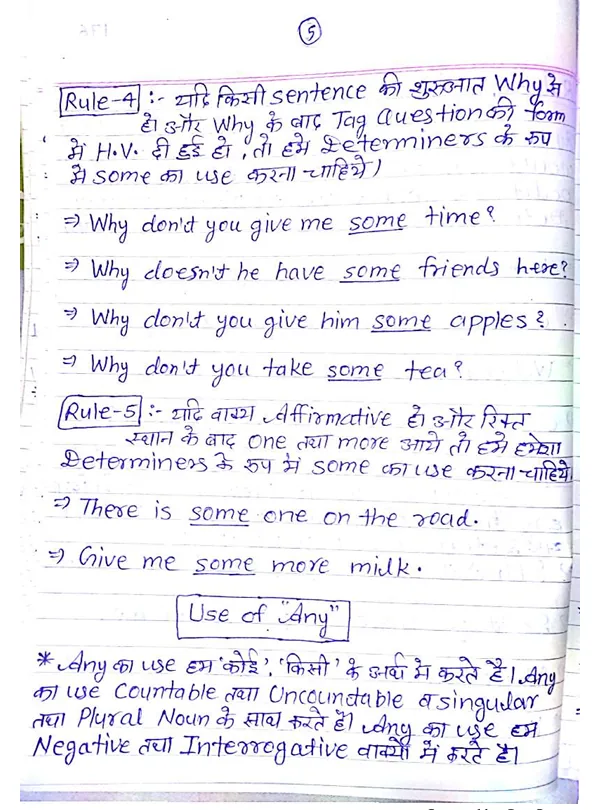 5
Rule-4 :- यदि किसी sentence की शुरुआत Why से
हो और Why के बाद Tag Question की form
में H.V. दी हुई हो, तो हमे Determiners के रूप
मे some का use करना चाहिये।
⇒ Why don't you give me some time?
⇒ Why doesn't he have some friends here?
⇒ Why don't you give him some apples?
⇒ Why don't you take some tea?
Rule-5 :- यदि वाक्य Affirmative हो और रिक्त
स्थान के बाद one तथा more आये तो हमे हमेशा
Determiners के रूप मे some का use करना चाहिये
⇒ There is some one on the road.
⇒ Give me some more milk.
Use of "Any"
* Any का use हम 'कोई', 'किसी' के अर्थ मे करते है। Any
का use Countable तथा Uncountable व singular
तथा Plural Noun के साथ करते है। Any का use हम
Negative तथा Interrogative वाक्यों में करते है।